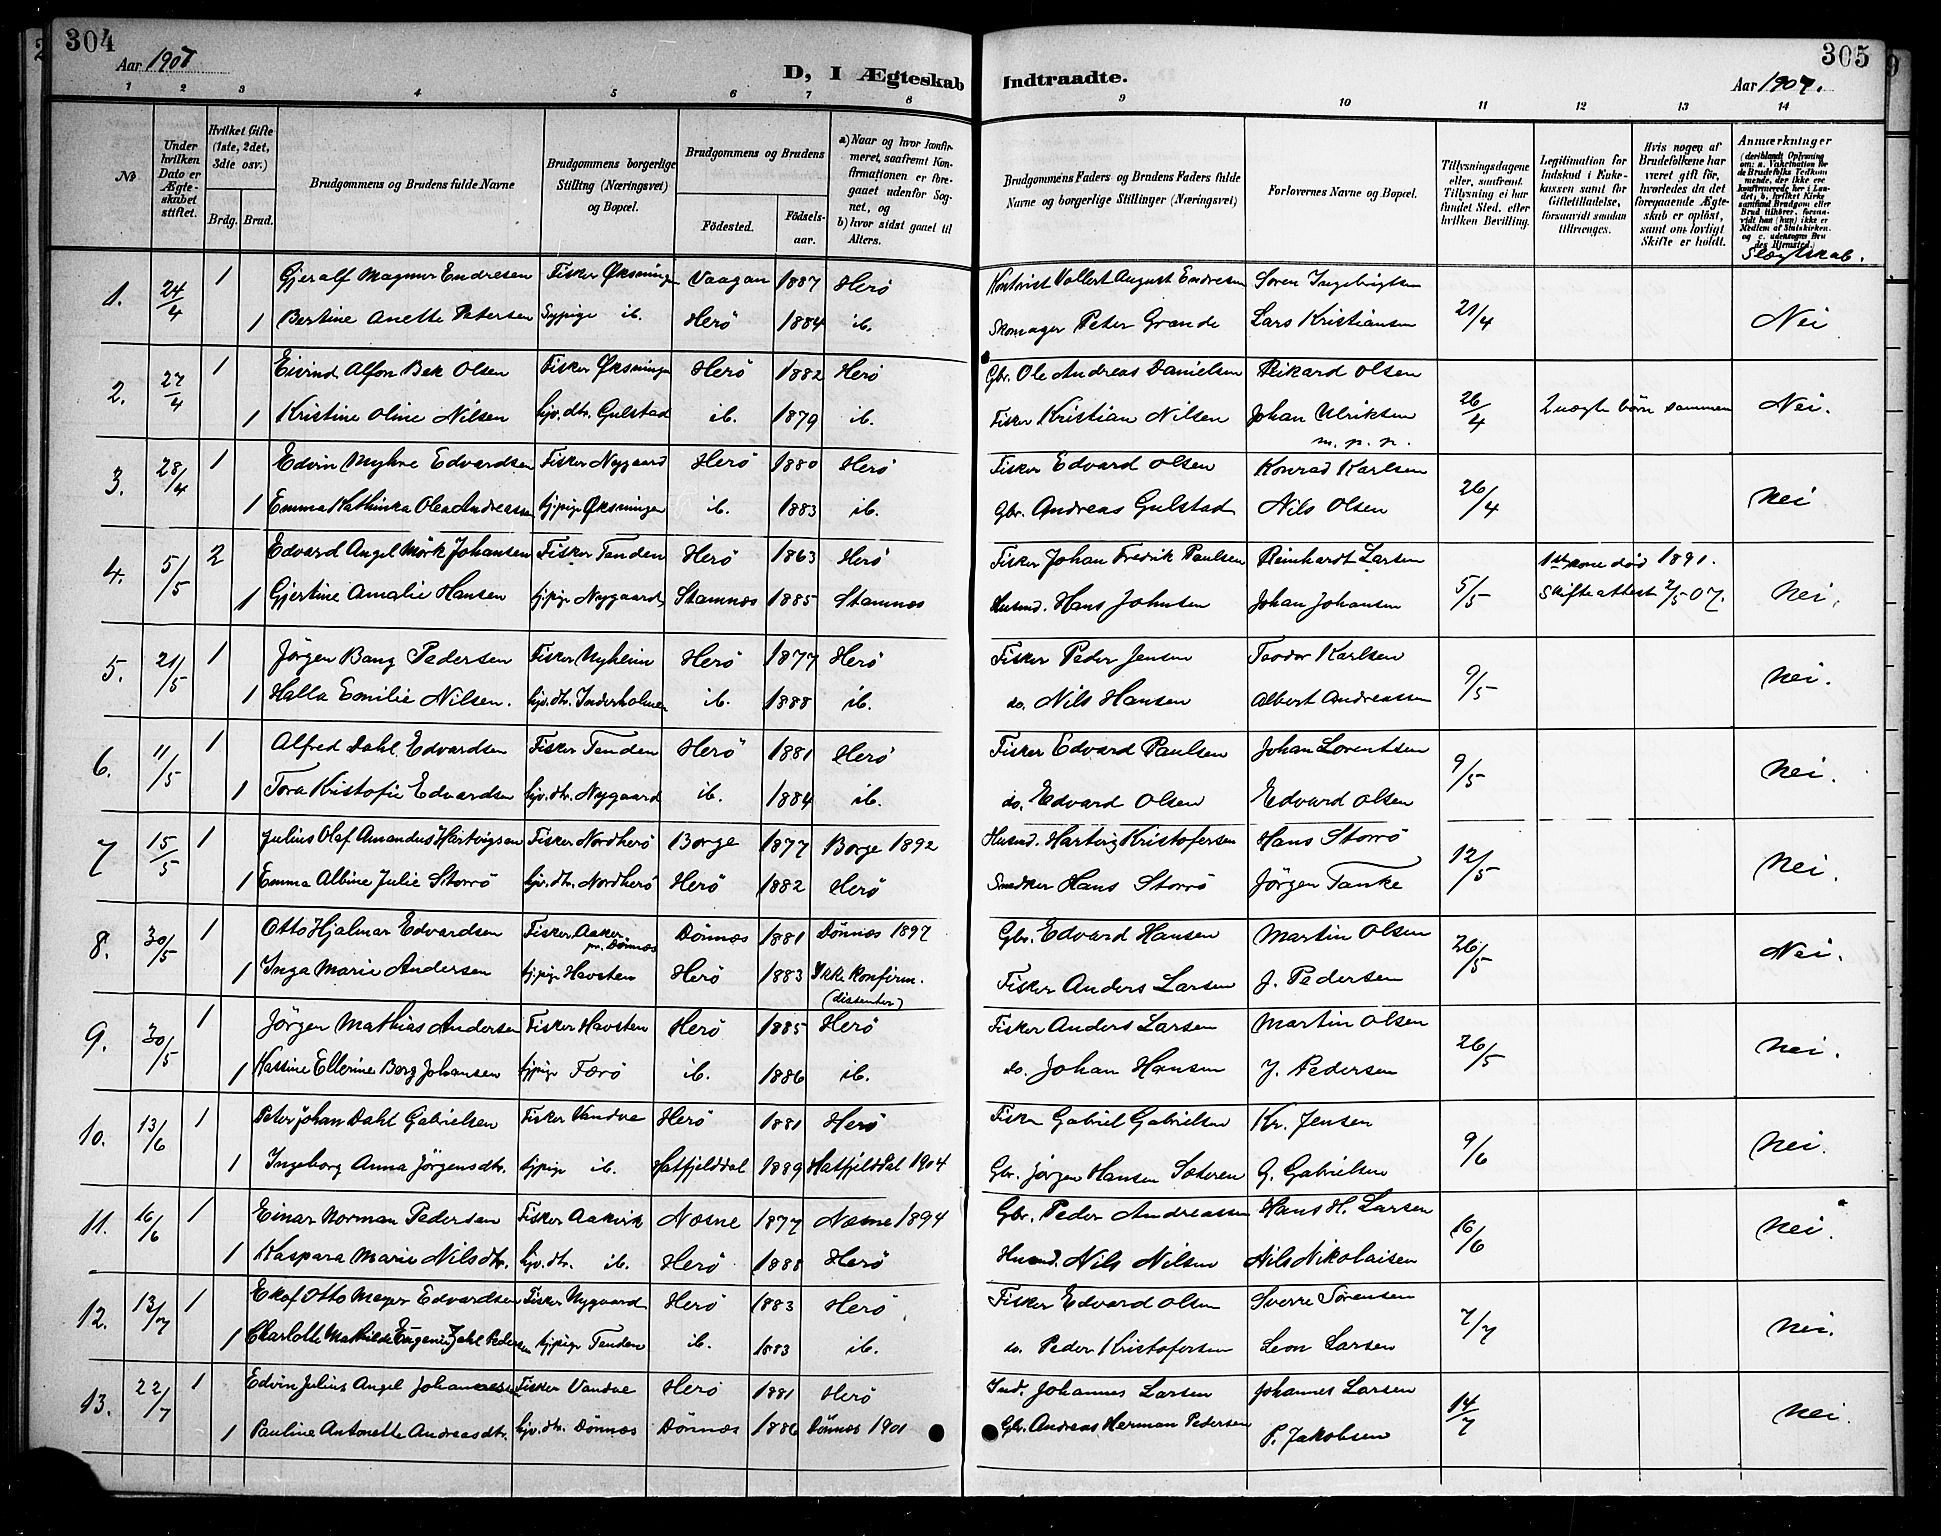 304
Aar 1907
D, I Ægteskab
1 2 3 4 5 6 7 8
No
Under hvilken Dato er Ægteskabet stiftet.
Hvilket Gifte (1ste, 2det, 3die osv.)
Brdg. Brud.
Brudgommens og Brudens fulde Navne
Brudgommens borgerlige Stilling (Næringsvei) og Bopæl.
Brudgommens og Brudens
Födested. Födselsaar.
a) Naar og hvor konfirmeret, saafremt Konfirmationen er foregaaet udenfor Sognet, og
b) hvor sidst gaaet til Alters.
305
Indtraadte.
Aar 1907.
9 10 11 12 13 14
Brudgommens Faders og Brudens Faders fulde Navne og borgerlige Stillinger (Næringsvei)
Forlovernes Navne og Bopæl.
Tillysningsdagene eller, saafremt Tillysning ei har fundet Sted, efter hvilken Bevilling.
Legitimation for Indskud i Enkekassen samt for Giftetilladelse, forsaavidt saadan tiltrænges.
Hvis nogen af Brudefolkene har været gift för, hvorledes da det foregaaende Ægteskab er oplöst, samt om lovligt Skifte er holdt.
Anmærkninger
Slægtskab.
1. 24/4 1 Gjeralf Magnus Endresen Fisker Øksningen Vaagan 1887 Herö Vollert August Endresen Søren Ingebrigtsen
1 Bertine Anette Petersen Sypige ib. Herö 1884 ib. Skomager Peter Grande Lars Kristiansen 21/4 Nei
2. 27/4 1 Eivind Alfon Bek Olsen Fisker Øksningen Herö 1882 Herö Gbr. Ole Andreas Danielsen Rikard Olsen
1 Kristine Oline Nilsen hjv. dtr. Gulstad ib. 1879 ib. Fisker Kristian Nilsen Johan Ulriksen 26/4 2 uægte børn sammen Nei.
m. p. p.
3. 28/4 1 Edvin Myhre Edvardsen Fisker Nygaard Herö 1880 Herö Fisker Edvard Olsen Konrad Karlsen
1 Emma Kathinka Olea Andreassen tj.pige Øksningen ib. 1883 ib. Gbr. Andreas Gulstad Nils Olsen 26/4 Nei
4. 5/5 2 Edvard Angel Mörk Johansen Fisker Tenden Herö 1863 Herö Fisker Johan Fredrik Paulsen Reinhardt Larsen 1ste kone död 1891.
1 Gjertine Amalie Hansen tj.pige Nygaard Stamnes 1885 Stamnes Husmd. Hans Johnsen Johan Johansen 5/5 Skifteattest 2/5 07. Nei.
5. 21/5 1 Jörgen Bang Pedersen Fisker Nyheim Herö 1877 Herö Fisker Peder Jensen Teodor Karlsen
1 Halla Emilie Nilsen. hjv. dtr. Inderholmen ib. 1888 ib. do. Nils Hansen Albert Andreassen 9/5 Nei.
6. 11/5 1 Alfred Dahl Edvardsen Fisker Tenden Herö 1881 Herö Fisker Edvard Paulsen Johan Lorentsen
1 Tora Kristofie Edvardsen hjv. dtr. Nygaard ib. 1884 ib. do. Edvard Olsen Edvard Olsen 9/5 Nei.
7 15/5 1 Julius Olaf Amandus Hartvigsen Fisker Nordherö Borge 1877 Borge 1892 Husmd. Hartvig Kristofersen Hans Storrö
1 Emma Albine Julie Storrö hjv. dtr. Nordherö Herö 1882 Herö Snedker Hans Storrö Jörgen Tanke 12/5 Nei.
8. 30/5 1 Otto Hjalmar Edvardsen Fisker Aaker pr. Dönnes Dönnes 1881 Dönnes 1897 Gbr. Edvard Hansen Martin Olsen
1 Inga Marie Andersen tj.pige Havsten Herö 1883 Ikke konfirm. (dissenter) Fisker Anders Larsen J. Pedersen 26/5 Nei.
9. 30/5 1 Jörgen Mathias Andersen Fisker Havsten Herö 1885 Herö Fisker Anders Larsen Martin Olsen
1 Hassine Ellerine Borg Johansen tjpige Færö ib. 1886 ib. do. Johan Hansen J. Pedersen 26/5 Nei.
10. 13/6 1 Peter Johan Dahl Gabrielsen Fisker Vandve Herö 1881 Herö Fisker Gabriel Gabrielsen Kr. Jensen
1 Ingeborg Anna Jörgensdtr. tjpige ib. Hatfjelddal 1889 Hatfjelddal 1904 Gbr. Jörgen Hansen Sæteren G. Gabrielsen 9/6 Nei.
11. 16/6 1 Einar Norman Pedersen Fisker Aakvik Næsne 1877 Næsne 1894 Gbr. Peder Andreassen Hans H. Larsen
1 Kaspara Marie Nilsdtr. hjv. dtr. ib. Herö 1888 Herö Husmd. Nils Nilsen Nils Nikolaisen 16/6 Nei.
12. 13/7 1 Otto Meyer Edvardsen Fisker Nygaard Herö 1883 Herö Fisker Edvard Olsen Sverre Sörensen
1 Charlotte Mathilde Eugenie Dahl Pedersen tjpige Tenden ib. 1883 ib. do. Peder Kristofersen Leon Larsen 7/7 Nei.
13. 22/7 1 Edvin Julius Angel Johannesen Fisker Vandve Herö 1881 Herö Ind. Johannes Larsen Johannes Larsen
1 Pauline Antonette Andreasdtr. hjv. dtr. Dönnes Dönnes 1886 Dönnes 1901 Gbr. Andreas Herman Pedersen P. Jakobsen 14/7 Nei.